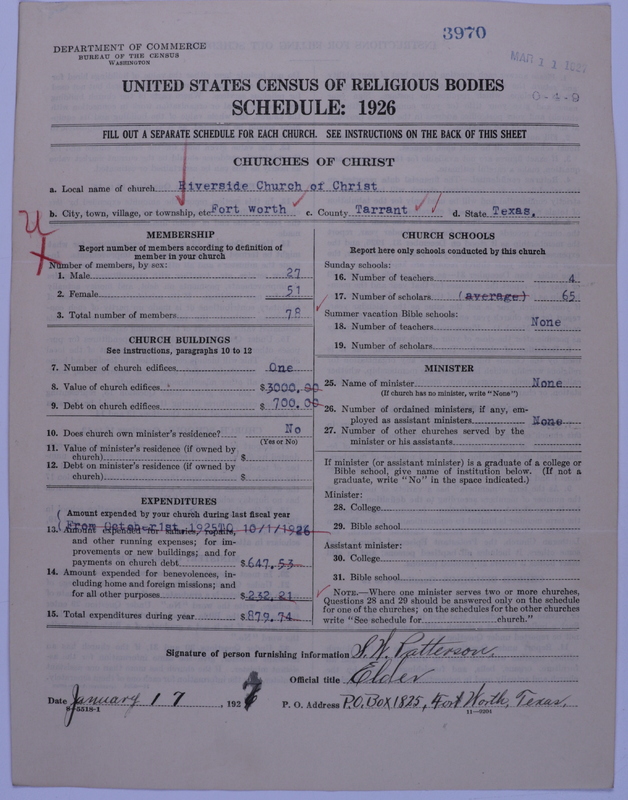 3970
DEPARTMENT OF COMMERCE
BUREAU OF THE CENSUS
WASHINGTON
MAR 11 192
UNITED STATES CENSUS OF RELIGIOUS BODIES
SCHEDULE: 1926
FILL OUT A SEPARATE SCHEDULE FOR EACH CHURCH. SEE INSTRUCTIONS ON THE BACK OF THIS SHEET
CHURCHES OF CHRIST
a. Local name of church Riverside Church of Christ
b. City, town, village, or township, etc. Fort worth c. County Tarrant d. State Texas,
MEMBERSHIP
Report number of members according to definition of
member in your church
Number of members, by sex:
1. Male 27
2. Female 51
3. Total number of members 78
CHURCH BUILDINGS
See instructions, paragraphs 10 to 12
7. Number of church edifices One
8. Value of church edifices $3000.00
9. Debt on church edifices $ 700.00
10. Does church own minister's residence? No
(Yes or No)
11. Value of minister's residence (if owned by
church) $
12. Debt on minister's residence (if owned by
church) $
EXPENDITURES
( Amount expended by your church during last fiscal year
(From October 1st 1925 TO 10/1/1926
13. Amount expended for salaries, repairs,
and other running expenses; for im-
provements or new buildings; and for
payments on church debt $647.53
14. Amount expended for benevolences, in-
cluding home and foreign missions; and
for all other purposes $232.21
15. Total expenditures during year $879.74
CHURCH SCHOOLS
Report here only schools conducted by this church
Sunday schools:
16. Number of teachers 4
17. Number of scholars (average) 65
Summer vacation Bible schools:
18. Number of teachers None
19. Number of scholars
MINISTER
25. Name of minister None
(If church has no minister, write "None")
26. Number of ordained ministers, if any, em-
ployed as assistant ministers None
27. Number of other churches served by the
minister or his assistants
If minister (or assistant minister) is a graduate of a college or
Bible school, give name of institution below. (If not a
graduate, write "No" in the space indicated.)
Minister:
28. College
29. Bible school
Assistant minister:
30. College
31. Bible school
NOTE.—Where one minister serves two or more churches,
Questions 28 and 29 should be answered only on the schedule
for one of the churches; on the schedules for the other churches
write "See schedule for church."
Signature of person furnishing information S. W. Patterson.
Official title Elder
Date January 17, 1927 P. O. Address P.O. Box 1825, Fort Worth, Texas.
8-5518-1 11—9204